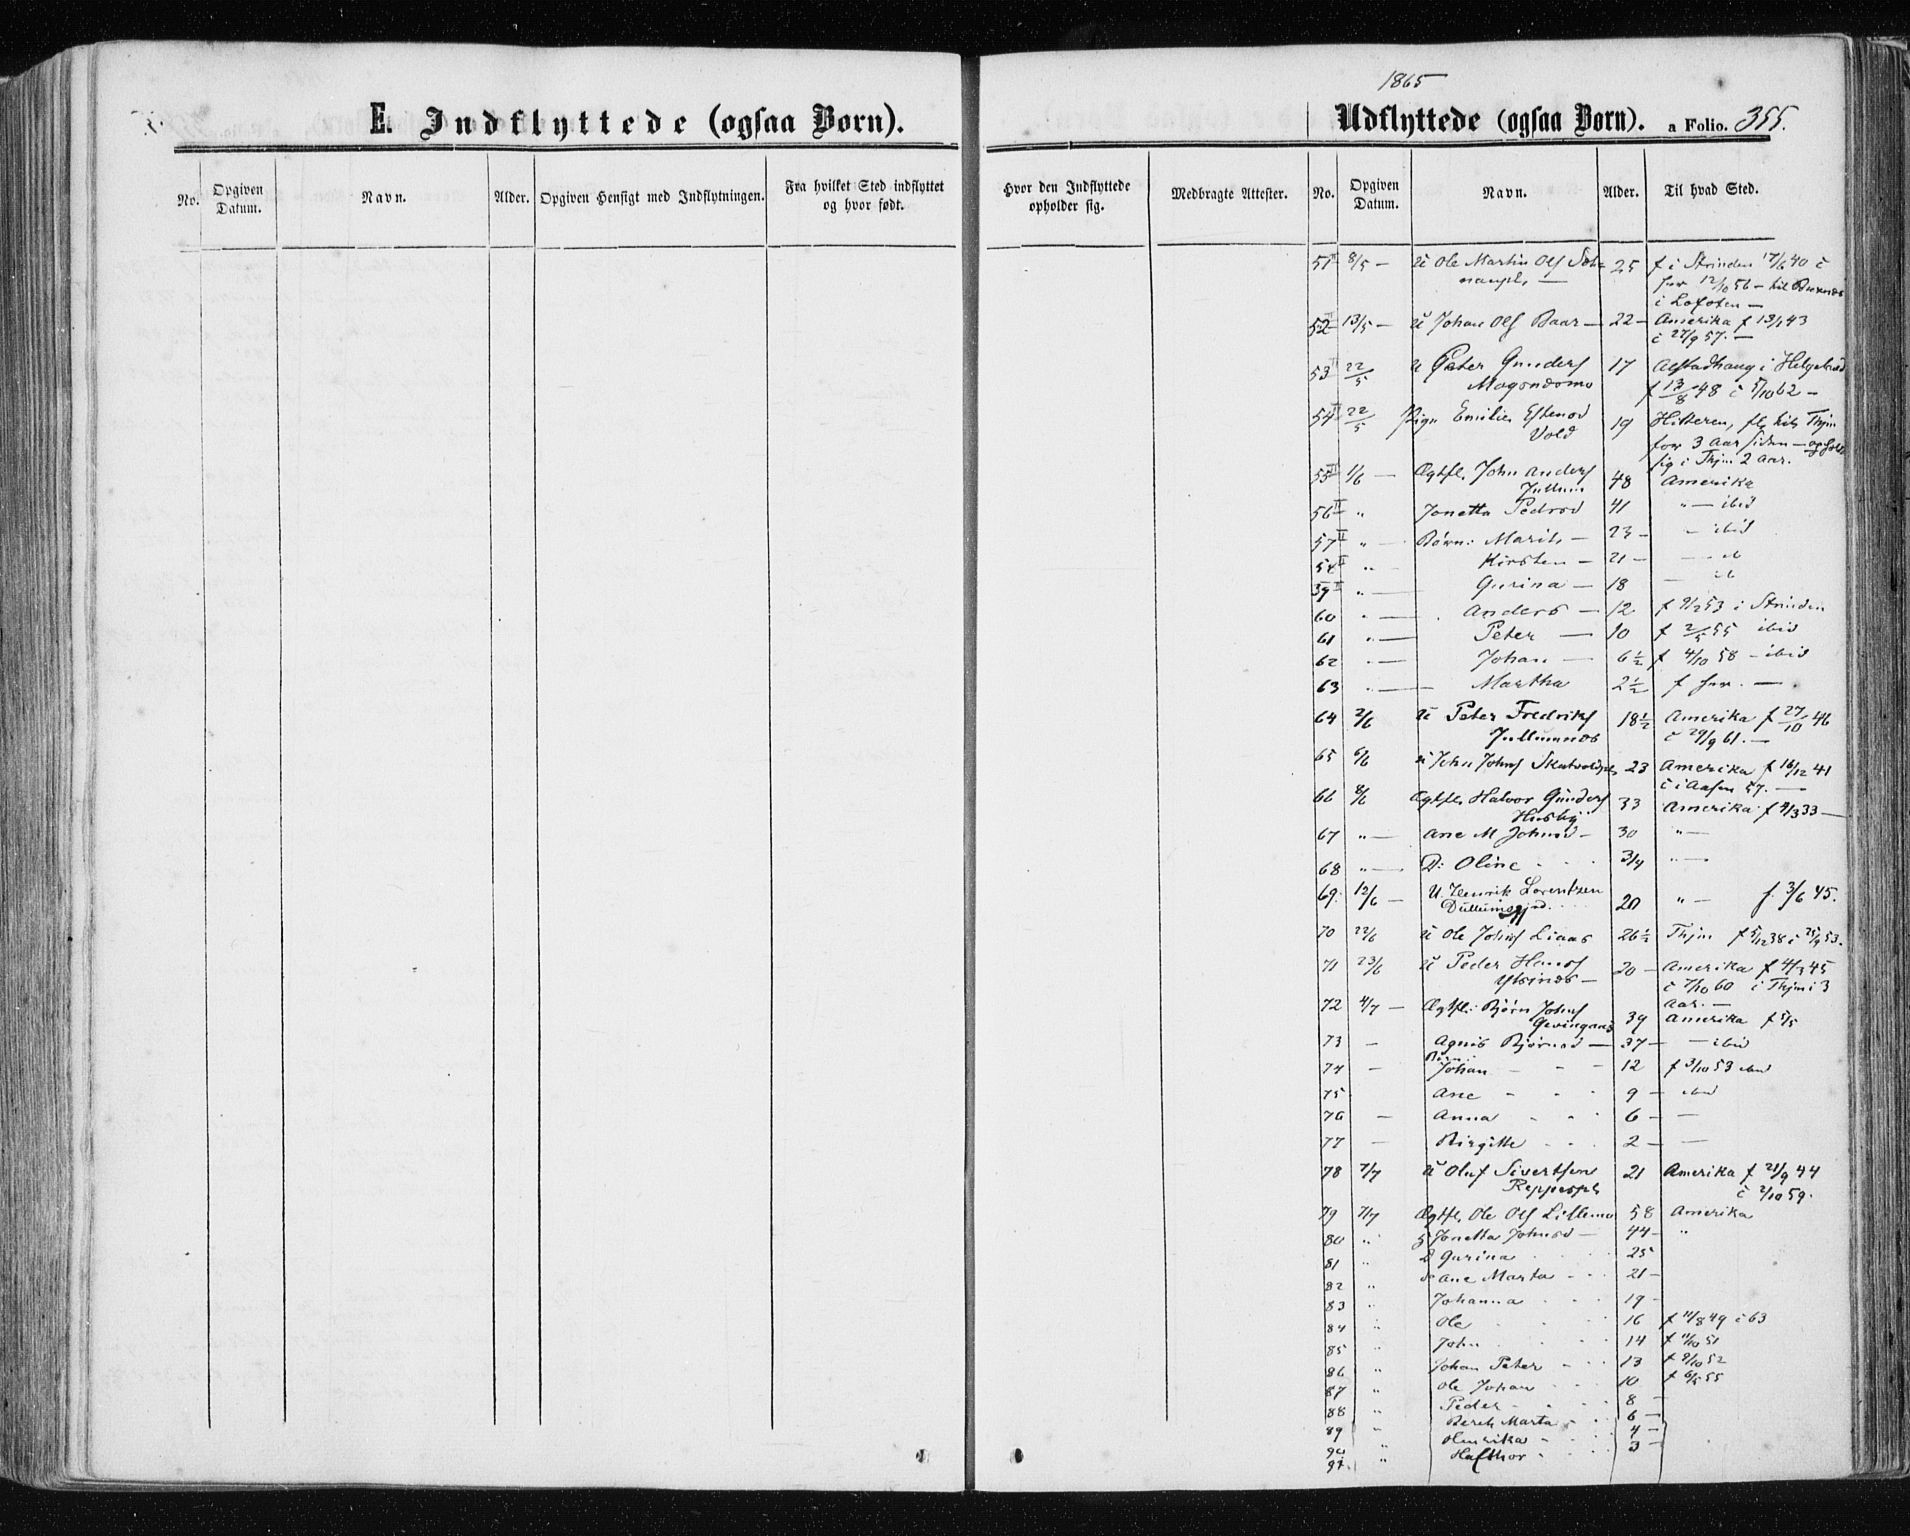 1865
E. Indflyttede (ogsaa Børn).
Udflyttede (ogsaa Børn). a Folio. 355.
No. Opgiven Datum. Navn. Alder. Opgiven Hensigt med Indflytningen. Fra hvilket Sted indflyttet og hvor født. Hvor den Indflyttede opholder sig. Medbragte Attester. No. Opgiven Datum. Navn. Alder. Til hvad Sted.
51 8/5 — U Ole Martin Ols 25 f i Strinden 17/6 40 c
her 12/10 56 — til
i Lofoten —
52 13/5 — U Johan Ols Baar — 22 — Amerika f 13/1 43
c 27/9 57. —
53 22/5 U Peter Gunders 17 Alstadhaug i Helgeland
f 13/8 48 c 5/10 62 —
54 22/5 Pige Emilie Estensd 19 Hitteren, til Thjm
Vold for 3 Aar siden —
sig i Thjm 2 Aar.
55 1/6 — Ægtfl. John Anders 48 Amerika
Jullum
56 " Jonetta Pedrsd 41 " — ibid
57 " — Børn: Marit — 23 — — ibid
58 " Kirsten — 21 — — ib
59 " — Gurina — 18 — ib
60 " — Anders — 12 f 9/12 53 i Strinden
61 " — Peter — 10 f 2/5 55 ibid
62 " — Johan — 6½ f 4/10 58 — ibid
63 " — Martha 2½ f her. —
64 2/6 U Peter Fredriks 18½ Amerika f 27/10 46
Jullumnes c 29/9 61. —
65 6/6 U John Johns 23 Amerika f 16/12 41
c i Aasen 57. —
66 8/6 Ægtfl. Halvor Gunders 33 Amerika f 9/3 33 —
Husby
67 " — Ane M Johnsd — 30 " —
68 " — D: Oline 3/4 " —
69. 12/6 — U. Henrik Lorentzen 20 " — f. 3/6 45.
70 22/6 U Ole Johns Liaas 26½ Thjm f 5/12 38 c 25/9 53.
71 23/6 U Peder Hans 20 — Amerika f 4/3 45
c 7/10 60 i Thjm i 3
Aar. —
72 4/7 — Ægtfl: Bjørn Johns 39 Amerika f 5/5
73 — Agnis Bjørnsd — 37 — — ibid
Børn:
74 — Johan 12 f 3/10 53 ibid
75 Ane 9 — ibid
76 — Anna 6 — —
77 — Birgitte 2 — —
78 7/7 U Oluf Sivertsen 21 Amerika f 21/9 44
c 2/10 59.
79 7/7 Ægtfl. Ole Ols Lillemo 58 Amerika
80 " Jonetta Johnsd — 44 — "
81 " D Gurina 25
82 " Ane Marta 21 —
83 " Johanna 19 —
84 " Ole 16 f 11/8 49 c 63
85 " John 14 f 11/10 51
86 " Johan Peter 13 f 9/10 52
87 " Ole Johan 10 f 6/5 55
88 " Peder 8 —
89 " Bereth Marta 6 —
90 " Henrika 4 —
91. " Halthor 3 —